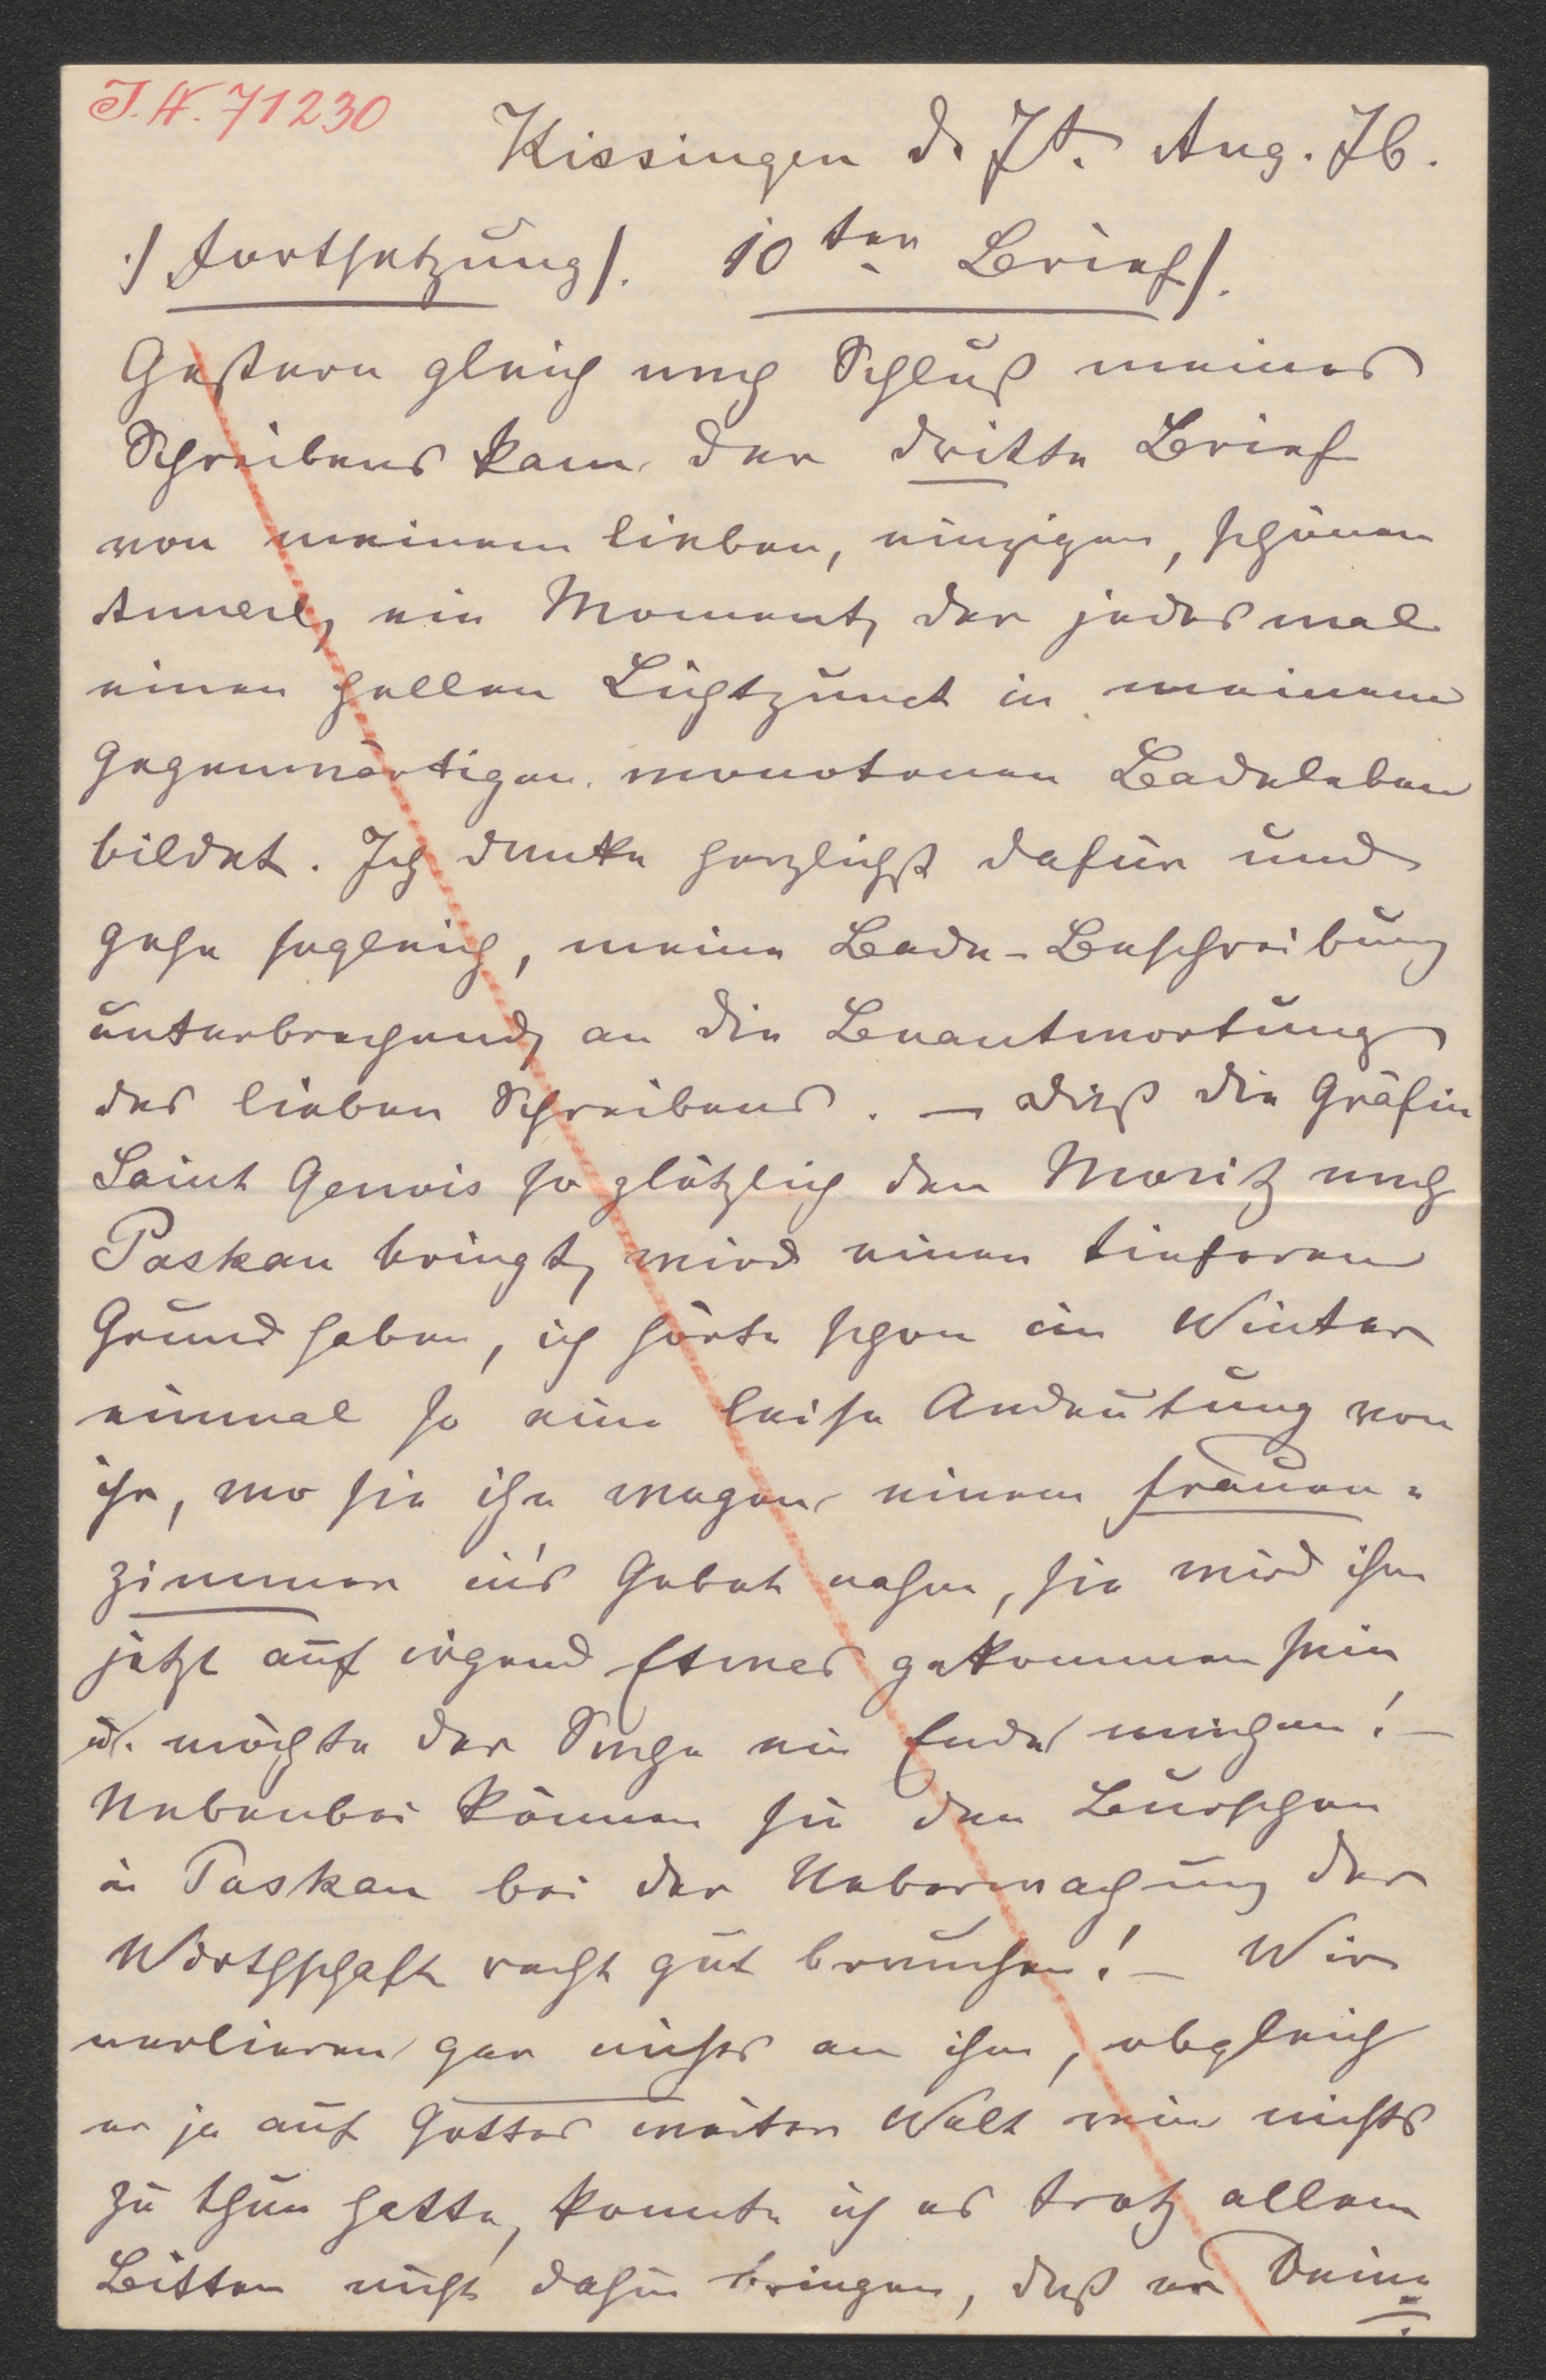 I.N. 71230
Kissingen d. 7t. Aug. 76.
./ Fortsetzung /. 10ter Brief /.
Gestern gleich nach Schluß meines
Schreibens kam der dritte Brief
von meinem lieben, einzigen, schönen
Annerl, ein Moment, der jedesmal
einen hellen Lichtpunct in meinem
gegenwärtigen monotonen Badeleben
bildet. Ich danke herzlichst dafür und
gehe sogleich, meine Bade-Beschreibung
unterbrechend, an die Beantwortung
des lieben Schreibens. — Daß die Gräfin
Saint Genois so plötzlich den Moritz nach
Paskau bringt, wird einen tieferen
Grund haben, ich hörte schon im Winter
einmal so eine leise Andeutung von
ihr, wo sie ihn wegen einem Frauen-
zimmer in's Gebet nahm, sie wird ihm
jetzt auf irgend Etwas gekommen sein
u. möchte der Sache ein Ende machen! —
Nebenbei können sie den Burschen
in Paskau bei der Ueberwachung der
Wirthschaft recht gut brauchen! — Wir
verlieren gar nichts an ihm, obgleich
er ja auf Gottes weiter Welt rein nichts
zu thun hatte, konnte ich es trotz allem
Bitten nicht dahin bringen, daß er Deine